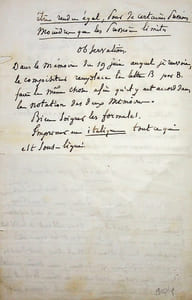 être rendu égal, pour de certaines
que les
Observation
Dans le Mémoire du 19 juin auquel je renvoie,
le compositeur remplace la lettre B par
faire la même chose afin qu'il y ait accord dans
la notation des deux Mémoires.
Bien soigner les formules.
Imprimer en italique tout ce qui
est sous-ligné